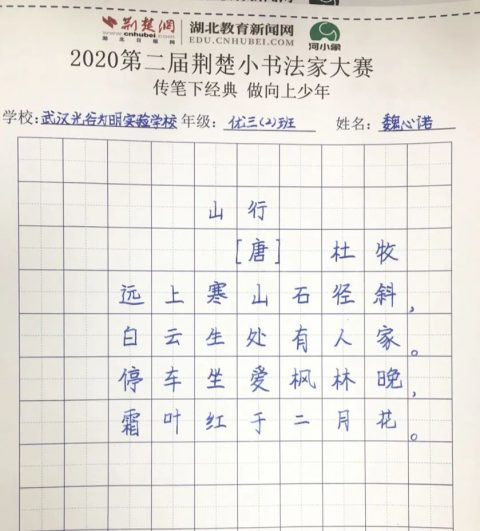 荆楚网 湖北教育新闻网 河小象
www.cnhubei.com EDU.CNHUBEI.COM
2020第二届荆楚小书法家大赛
传笔下经典 做向上少年
学校:武汉光谷为明实验学校 年级:优三(2)班 姓名:魏心诺
山行
[唐] 杜牧
远上寒山石径斜,
白云生处有人家。
停车坐爱枫林晚,
霜叶红于二月花。